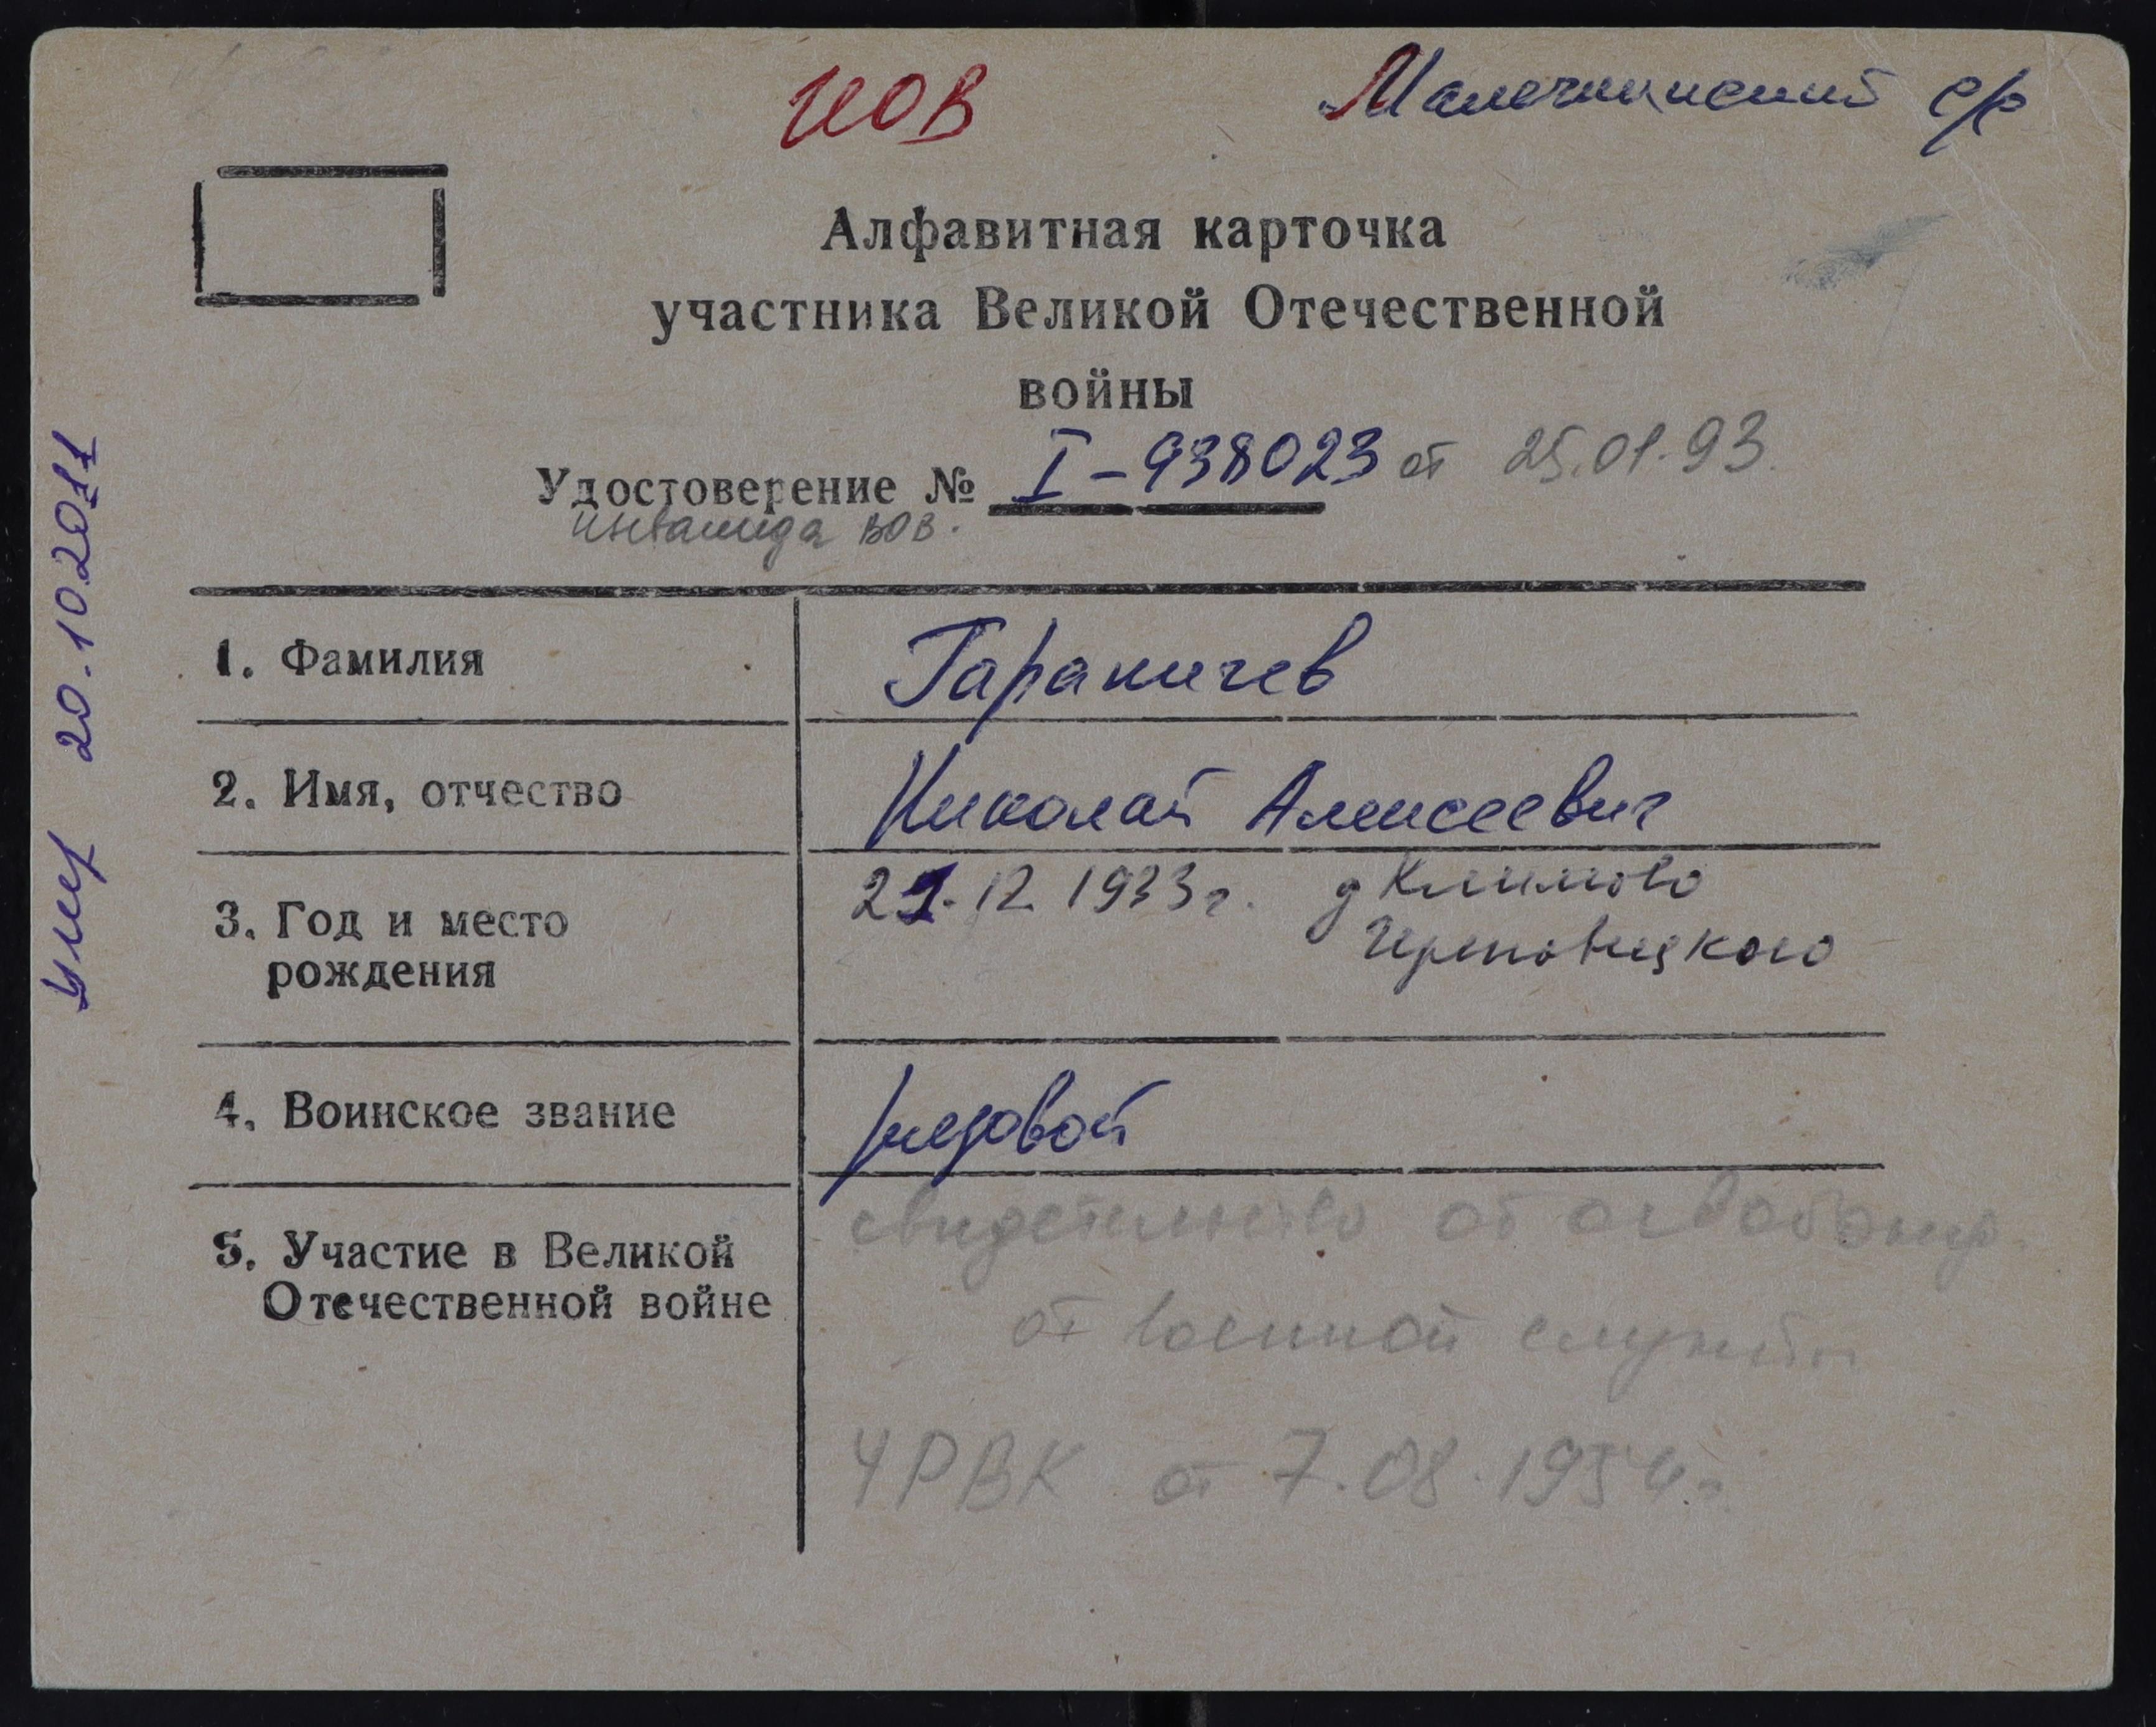 ИОВ
Малечкинский с/с
Алфавитная карточка
участника Великой Отечественной
войны
Удостоверение № I-938023 от 25.01.93.
инвалида ВОВ.
1. Фамилия Гараничев
2. Имя, отчество Николай Алексеевич
3. Год и место рождения 21.12 1933г. д Климово
Череповецкого
4. Воинское звание рядовой
5. Участие в Великой Отечественной войне свидетельство об освобожд.
от военной службы
ЧРВК от 7.08.1954г.
умер 20.10.2011